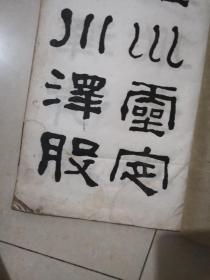 巛靈定
川澤股